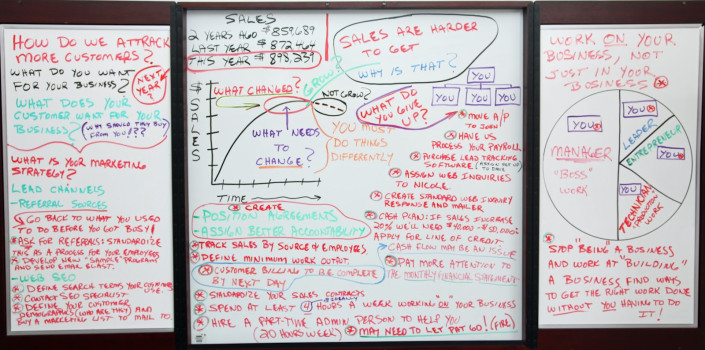 HOW DO WE ATTRACK
MORE CUSTOMERS?
WHAT DO YOU WANT
FOR YOUR BUSINESS?
NEXT
YEAR?
WHAT DOES YOUR
CUSTOMER WANT FOR YOUR
BUSINESS?
WHY SHOULD THEY BUY
FROM YOU!??
WHAT IS YOUR MARKETING
STRATEGY?
LEAD CHANNELS
- REFERRAL SOURCES
GO BACK TO WHAT YOU USED
TO DO BEFORE YOU GOT BUSY!
ASK FOR REFERRALS: STANDARDIZE
THIS AS A PROCESS FOR YOUR EMPLOYEES
DEVELOP NEW "SAMPLE" PROGRAMS
AND SEND EMAIL BLAST.
- WEB SEO
DEFINE SEARCH TERMS YOUR CUSTOMERS
USE.
CONTACT SEO SPECIALIST
DEFINE YOUR CUSTOMER
DEMOGRAPHICS (WHO ARE THEY) AND
BUY A MARKETING LIST TO MAIL TO.
SALES
2 YEARS AGO $859,689
LAST YEAR $872,464
THIS YEAR $898,239
SALES ARE HARDER
TO GET
WHY IS THAT?
GROW?
$
SALES
WHAT CHANGED?
NOT GROW?
WHAT NEEDS
TO
CHANGE?
TIME
WHAT DO
YOU GIVE
UP?
YOU MUST
DO THINGS
DIFFERENTLY
YOU
YOU YOU YOU
MOVE A/P
TO JOHN!
HAVE US
PROCESS YOUR PAYROLL.
PURCHASE LEAD TRACKING
SOFTWARE
ASSIGN WEB INQUIRIES
TO NICOLE.
CREATE STANDARD WEB INQUIRY
RESPONSE AND MAILER
CASH PLAN: IF SALES INCREASE
20% WE'LL NEED $40,000 - $50,000
APPLY FOR LINE OF CREDIT
CASH FLOW MAY BE AN ISSUE
PAY MORE ATTENTION TO
THE MONTHLY FINANCIAL STATEMENT
CREATE
- POSITION AGREEMENTS
- ASSIGN BETTER ACCOUNTABILITY
TRACK SALES BY SOURCE & EMPLOYEES
DEFINE MINIMUM WORK OUTPUT.
CUSTOMER BILLING TO BE COMPLETE
BY NEXT DAY
STANDARDIZE YOUR SALES CONTRACTS
SPEND AT LEAST 4 HOURS A WEEK WORKING "ON" YOUR BUSINESS
HIRE A PART-TIME ADMIN PERSON TO HELP YOU
(20 HOURS WEEK)
MAY NEED TO LET PAT GO! (FIRE)
WORK ON YOUR
BUSINESS, NOT
JUST IN YOUR
BUSINESS
YOU
MANAGER
"BOSS"
WORK
YOU
LEADER
ENTREPREUEUR
YOU
YOU
TECHNICIAN
PRODUCTION
WORK
STOP "BEING" A BUSINESS
AND WORK AT "BUILDING"
A BUSINESS FIND WAYS
TO GET THE RIGHT WORK DONE
WITHOUT YOU HAVING TO DO
IT!